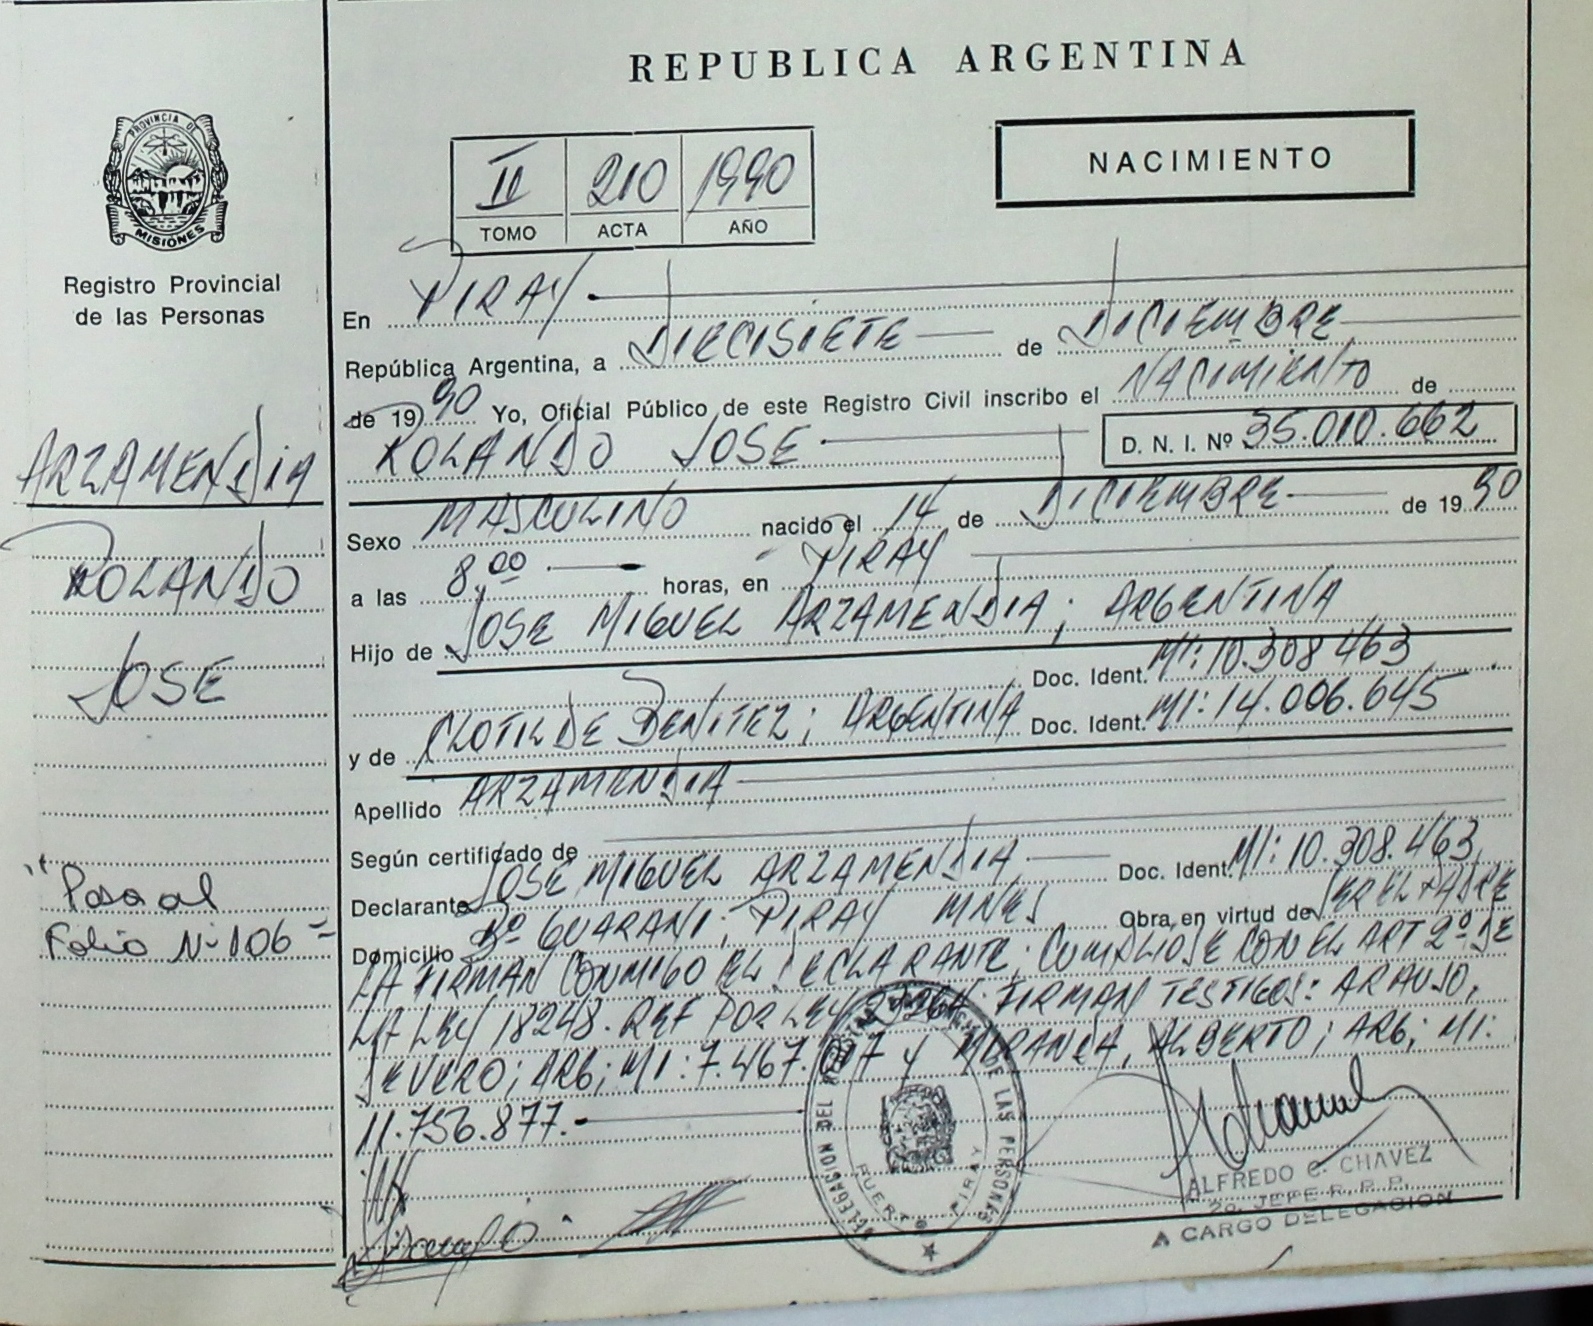 REPUBLICA ARGENTINA
PROVINCIA DE
MISIONES
Registro Provincial
de las Personas
II 210 1990
TOMO ACTA AÑO
NACIMIENTO
En PIRAY
República Argentina, a DIECISIETE de DICIEMBRE
de 1990 Yo, Oficial Público de este Registro Civil inscribo el NACIMIENTO de
ROLANDO JOSE D. N. I. Nº 35.010.662
Sexo MASCULINO nacido el 14 de DICIEMBRE de 1990
a las 8,00 horas, en PIRAY
Hijo de JOSE MIGUEL ARZAMENDIA; ARGENTINA
Doc. Ident. MI: 10.308.463
y de CLOTILDE BENITEZ; ARGENTINA Doc. Ident. MI: 14.006.645
Apellido ARZAMENDIA
Según certificado de
Declarante JOSE MIGUEL ARZAMENDIA Doc. Ident. MI: 10.308.463
Domicilio Bº GUARANI; PIRAY MNES Obra en virtud de SER EL PADRE
LA FIRMAN CONMIGO EL DECLARANTE; CUMPLIOSE CON EL ART 2º DE
LA LEY 18248. REF POR LEY 23264. FIRMAN TESTIGOS: ARAUJO,
SEVERO; ARG; MI: 7.467. y MIRANDA, ALBERTO; ARG; MI:
11.756.877.
ARZAMENDIA
ROLANDO
JOSE
"Pasa al
Folio Nº 106"
DELEGACION DEL DE LAS PERSONAS
PUERTO PIRAY
ALFREDO C. CHAVEZ
2o. JEFE R. P. P.
A CARGO DELEGACION